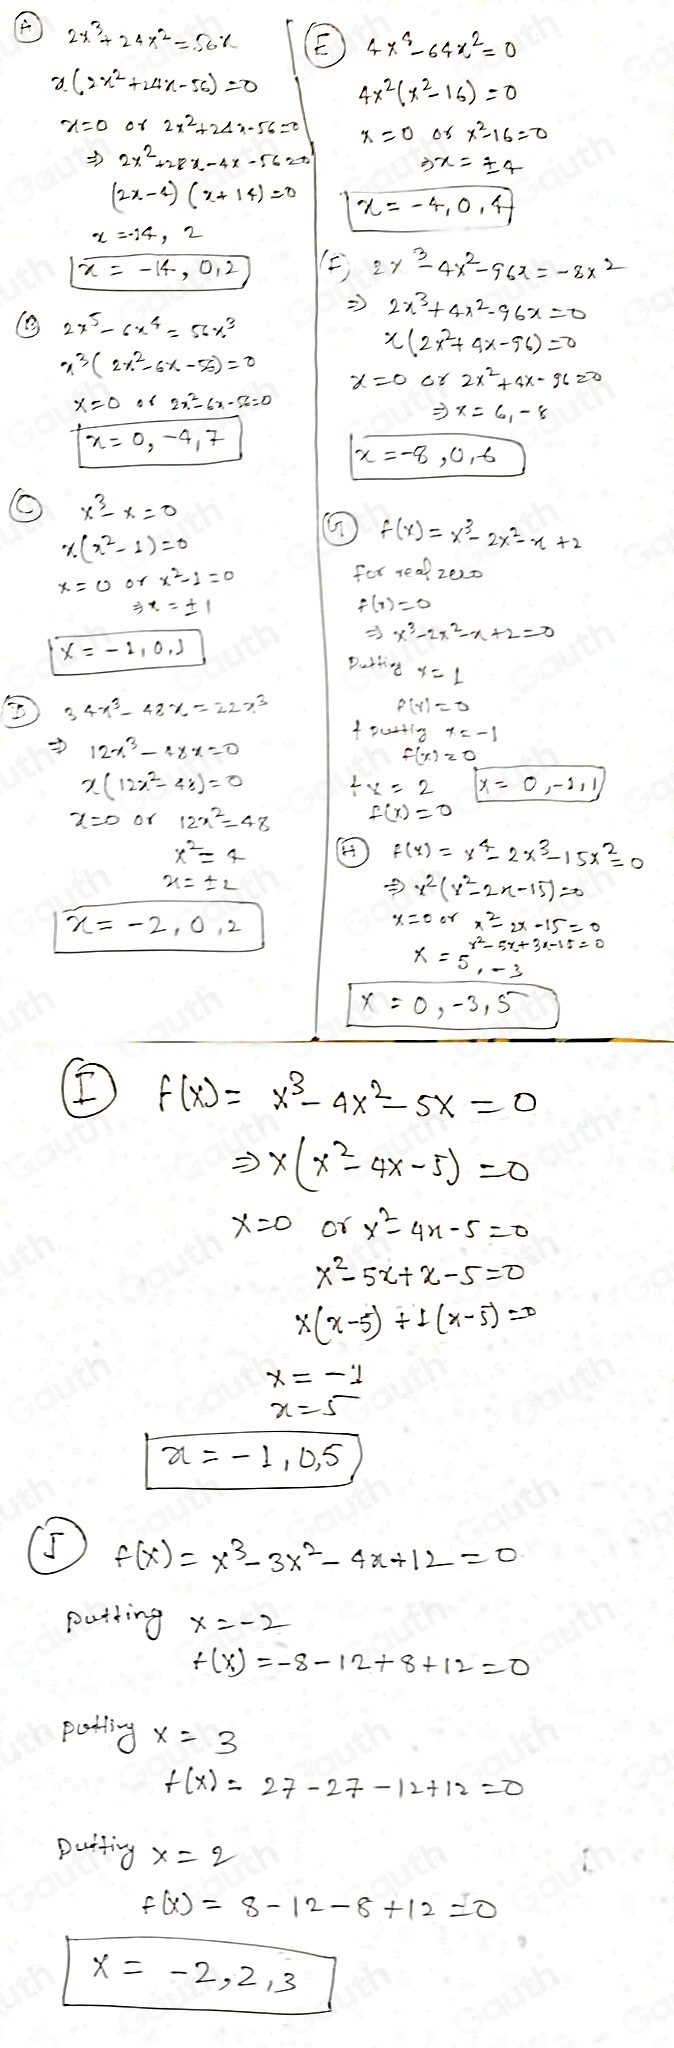 A 2x³ + 24x² = 56x
x(2x² + 24x - 56) = 0
x = 0 or 2x² + 24x - 56 = 0
⇒ 2x² + 28x - 4x - 56 = 0
(2x - 4) (x + 14) = 0
x = -14, 2
x = -14, 0, 2
B 2x⁵ - 6x⁴ = 56x³
x³(2x² - 6x - 56) = 0
x = 0 or 2x² - 6x - 56 = 0
x = 0, -4, 7
C x³ - x = 0
x(x² - 1) = 0
x = 0 or x² - 1 = 0
⇒ x = ±1
x = -1, 0, 1
D 34x³ - 48x = 22x³
⇒ 12x³ - 48x = 0
x(12x² - 48) = 0
x = 0 or 12x² = 48
x² = 4
x = ±2
x = -2, 0, 2
E 4x⁴ - 64x² = 0
4x²(x² - 16) = 0
x = 0 or x² - 16 = 0
⇒ x = ±4
x = -4, 0, 4
F) 2x³ - 4x² - 96x = -8x²
⇒ 2x³ + 4x² - 96x = 0
x(2x² + 4x - 96) = 0
x = 0 or 2x² + 4x - 96 = 0
⇒ x = 6, -8
x = -8, 0, 6
G f(x) = x³ - 2x² - x + 2
for real zero
f(x) = 0
⇒ x³ - 2x² - x + 2 = 0
Putting x = 1
f(x) = 0
+ putting x = -1
f(x) = 0
+ x = 2 x = 0, -1, 1
f(x) = 0
H f(x) = x⁴ - 2x³ - 15x² = 0
⇒ x²(x² - 2x - 15) = 0
x = 0 or x² - 2x - 15 = 0
x² - 5x + 3x - 15 = 0
x = 5, -3
x = 0, -3, 5
I f(x) = x³ - 4x² - 5x = 0
⇒ x(x² - 4x - 5) = 0
x = 0 or x² - 4x - 5 = 0
x² - 5x + x - 5 = 0
x(x - 5) + 1(x - 5) = 0
x = -1
x = 5
x = -1, 0, 5
J f(x) = x³ - 3x² - 4x + 12 = 0
putting x = -2
f(x) = -8 - 12 + 8 + 12 = 0
putting x = 3
f(x) = 27 - 27 - 12 + 12 = 0
Putting x = 2
f(x) = 8 - 12 - 8 + 12 = 0
x = -2, 2, 3